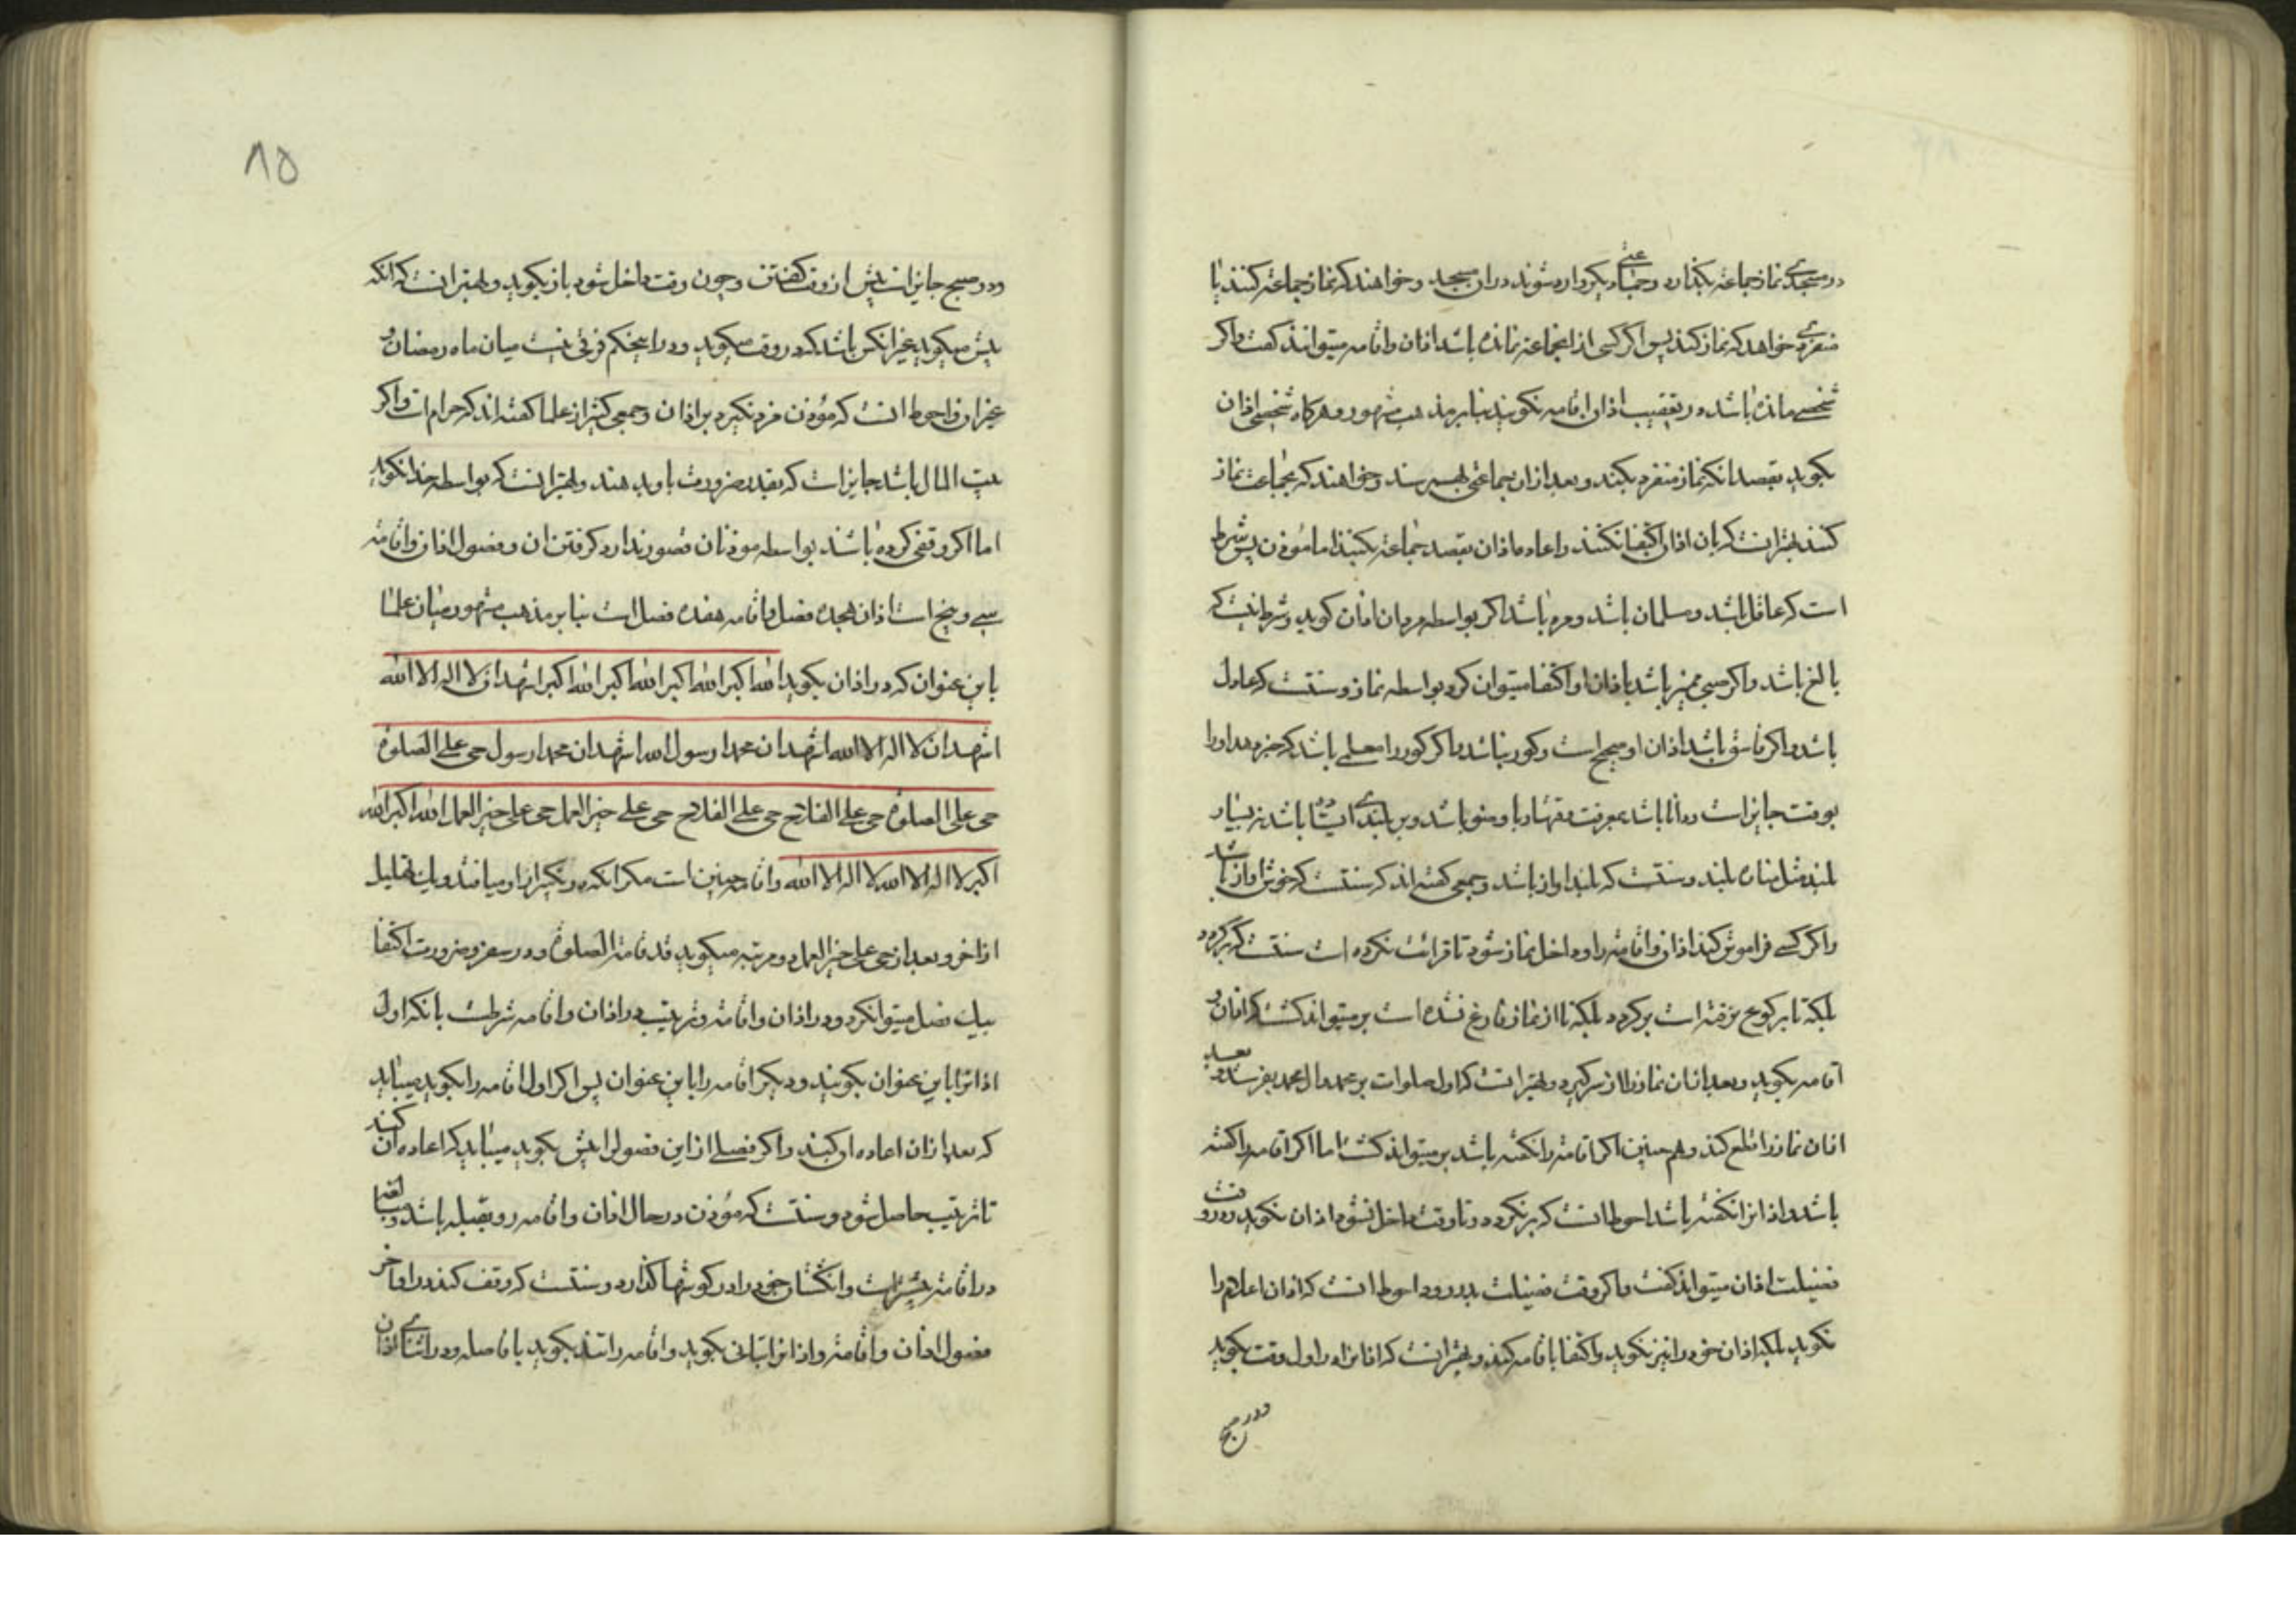 در مسجدی نماز جماعة بگذارد و جماعتی دیگر وارد شوند در ان مسجد و خواهند که نماز جماعة کنند یا
منفردی خواهد که نماز کند پس اگر کسی از انجماعة نمانده باشد اذان و اقامه میتوانند گفت و اگر
شخصی مانده باشد در تعقیب اذان اقامه نگویند بنابر مذهب مشهور و هرگاه شخصی اذان
بگوید بقصد انکه نماز منفرد بکند و بعد از ان جماعتی بهم رسند و خواهند که بجماعت نماز
کنند بهتر انست که بان اذان اکتفا نکنند و اعاده اذان بقصد جماعة بکنند اما مؤذن پس شرط
است که عاقل باشد و مسلمان باشد و مرد باشد اگر بواسطه مردان اذان گوید و شرط نیست که
بالغ باشد و اگر صبی ممیز باشد باذان او اکتفا میتوان کرد بواسطه نماز و سنتست که عادل
باشد و اگر فاسق باشد اذان او صحیح است و کور نباشد و اگر کور را معلمی باشد که خبر دهد او را
بوقت جایز است و دانا باشد بمعرفت وقتها و با وضو باشد و بر بلندی ایستاده باشد نه بسیار
بلند مثل مناره بلند و سنتست که بلند اواز باشد و جمعی گفته اند که سنتست که خوش اواز باشد
و اگر کسی فراموش کند اذان و اقامه را و داخل نماز شود تا قرائت نکرده است سنتست که برگردد
بلکه تا برکوع نرفته است برگردد بلکه تا از نماز فارغ نشده است بر میتواند گشت که اذان و
اقامه بگوید و بعد از ان نماز را از سر گیرد و بهتر انست که اول صلوات بر محمد و ال محمد بفرستد و بعد
از ان نماز را قطع کند و هم چنین اگر اقامه را نگفته باشد بر میتواند گشت اما اگر اقامه را گفته
باشد و اذانرا نگفته باشد احوط انست که برنگردد و تا وقت داخل نشود اذان نگوید و در وقت
فضیلت اذان میتواند گفت و اگر وقت فضیلت بدر رود احوط انست که اذان اعلام را
نگوید بلکه اذان خود را نیز نگوید و اکتفا باقامه کند و بهتر انست که اذانرا در اول وقت بگوید
و در صبح
۸۵
و در صبح جایز است پیش از وقت گفتن و چون وقت داخل شود باز بگوید و بهتر انست که انکه
پیش میگوید غیر انکس باشد که در وقت میگوید و در این حکم فرقی نیست میان ماه رمضان و
غیر ان و احوط انست که مؤذن مزد نگیرد بر اذان و جمعی کثیر از علما گفته اند که حرام است و اگر
بیت المال باشد جایز است که بقدر ضرورت باو بدهند و بهتر انست که بواسطه خدا بگوید
اما اگر وقفی کرده باشند بواسطه موذنان قصور ندارد گرفتن ان و فصول اذان و اقامه
سی و پنج است اذان هجده فصل و اقامه هفده فصل است بنابر مذهب مشهور میان علما
باین عنوان که در اذان بگوید الله اکبر الله اکبر الله اکبر الله اکبر اشهد ان لا اله الا الله
اشهد ان لا اله الا الله اشهد ان محمدا رسول الله اشهد ان محمدا رسول حی علی الصلوة
حی علی الصلوة حی علی الفلاح حی علی الفلاح حی علی خیر العمل حی علی خیر العمل الله اکبر الله
اکبر لا اله الا الله لا اله الا الله و اقامه چنین است مگر انکه دو تکبیر از او میافتد و یک تهلیل
از اخر و بعد از حی علی خیر العمل دو مرتبه میگوید قد قامت الصلوة و در سفر و ضرورت اکتفا
بیک فصل میتوان کرد و در اذان و اقامه و ترتیب در اذان و اقامه شرطست بانکه اول
اذانرا باین عنوان بگویند و دیگر اقامه را باین عنوان پس اگر اول اقامه را بگوید میباید
که بعد از ان اعاده او کند و اگر فصلی از این فصول را پیش بگوید میباید که اعاده ان کند
تا ترتیب حاصل شود و سنتست که مؤذن در حال اذان و اقامه رو بقبله باشد و
در اقامه بیشتر است و انگشتان خود را در گوشها گذارد و سنتست که وقف کند در اواخر
فصول اذان و اقامه و اذانرا بتانی بگوید و اقامه را تند بگوید با فاصله و در اثنای اذان